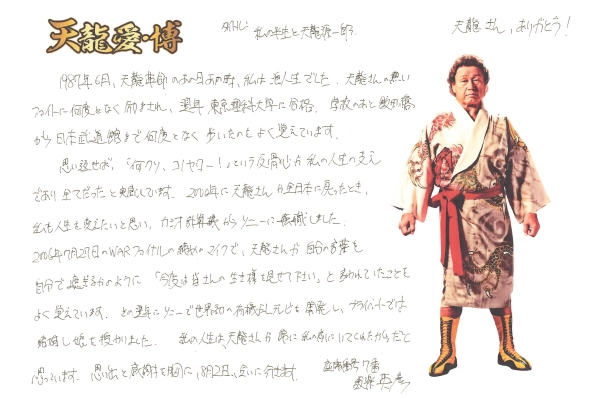 天龍愛・博
タイトル: 私の半生と天龍源一郎
天龍さん、ありがとう!
1987年6月、天龍革命のあの日あの時、私は浪人生でした。天龍さんの熱い
ファイトに何度となく励まされ、翌年東京理科大学に合格。学校のあと飯田橋
から日本武道館まで何度となく歩いたのもよく覚えています。
思い返せば、「何クソ、コノヤロー!」という反骨心が私の人生の支え
であり全てだったと実感しています。2000年に天龍さんが全日本に戻ったとき、
私も人生を変えたいと思い、カシオ計算機からソニーに転職しました。
2006年7月27日のWARファイナルの最後のマイクで、天龍さんが自分の言葉を
自分で噛みしめるかのように「今度は皆さんの生き様を見せて下さい」と言われていたことを
よく覚えています。その翌年ソニーで世界初の有機ELテレビを開発し、プライベートでは
結婚し娘を授かりました。私の人生は、天龍さんが常に私の前にいてくれたからだと
思っています。思い出と感謝を胸に、8月2日、会いに行きます。
7番